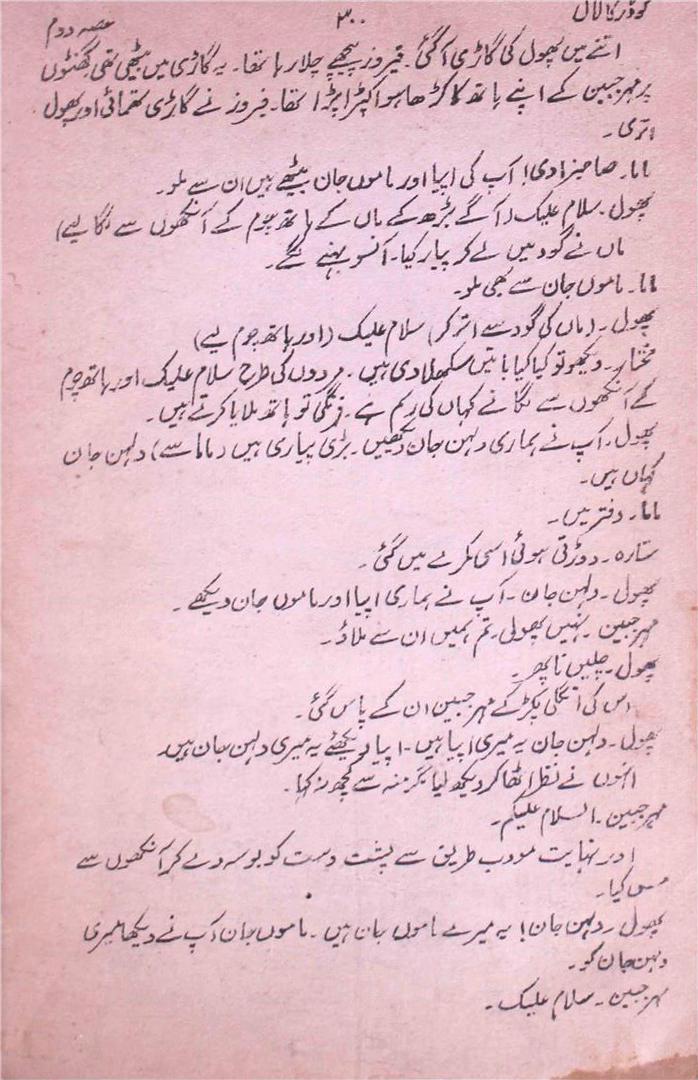 گودڑ کا لال ۳۰۰ حصہ دوم
اتنے میں پھول کی گاڑی آ گئی۔ فیروز پیچھے چلا رہا تھا۔ یہ گاڑی میں بیٹھی تھی گھٹنوں
پر مہر جبین کے اپنے ہاتھ کا کڑھا ہوا کپڑا پڑا تھا۔ فیروز نے گاڑی تھمائی اور پھول
اتری۔
اانا۔ صاحبزادی! آپ کی اپیا اور ماموں جان بیٹھے ہیں ان سے ملو۔
پھول۔ سلام علیک (آگے بڑھ کے ماں کے ہاتھ چوم کے آنکھوں سے لگا لیے)
ماں نے گود میں لے کر پیار کیا۔ آنسو بہنے لگے۔
اانا۔ ماموں جان سے بھی ملو۔
پھول۔ (ماں کی گود سے اتر کر) سلام علیک (اور ہاتھ چوم لیے)
مختار۔ دیکھو تو کیا کیا باتیں سکھلا دی ہیں۔ مردوں کی طرح سلام علیک اور ہاتھ چوم
کے آنکھوں سے لگانے کہاں کی رسم ہے۔ فرنگی تو ہاتھ ملایا کرتے ہیں۔
پھول۔ آپ نے ہماری دلہن جان دیکھیں۔ بڑی پیاری ہیں (ماما سے) دلہن جان
کہاں ہیں۔
ماما۔ دفتر میں۔
ستارہ۔ دوڑتی ہوئی اسی کمرے میں گئی۔
پھول۔ دلہن جان۔ آپ نے ہماری اپیا اور ماموں جان دیکھے۔
مہر جبین۔ نہیں پھولی۔ تم ہمیں ان سے ملاؤ۔
پھول۔ چلیں نا پھر۔
اس کی انگلی پکڑ کے مہر جبین ان کے پاس گئی۔
پھول۔ دلہن جان یہ میری اپیا ہیں۔ اپیا دیکھئے یہ میری دلہن جان ہیں۔
انہوں نے نظر اٹھا کر دیکھ لیا مگر منہ سے کچھ نہ کہا۔
مہر جبین۔ السلام علیکم۔
اور نہایت مودب طریق سے پشت دست کو بوسہ دے کر آنکھوں سے
مس کیا۔
پھول۔ دلہن جان! یہ میرے ماموں جان ہیں۔ ماموں جان آپ نے دیکھا میری
دلہن جان کو۔
مہر جبین۔ سلام علیک۔